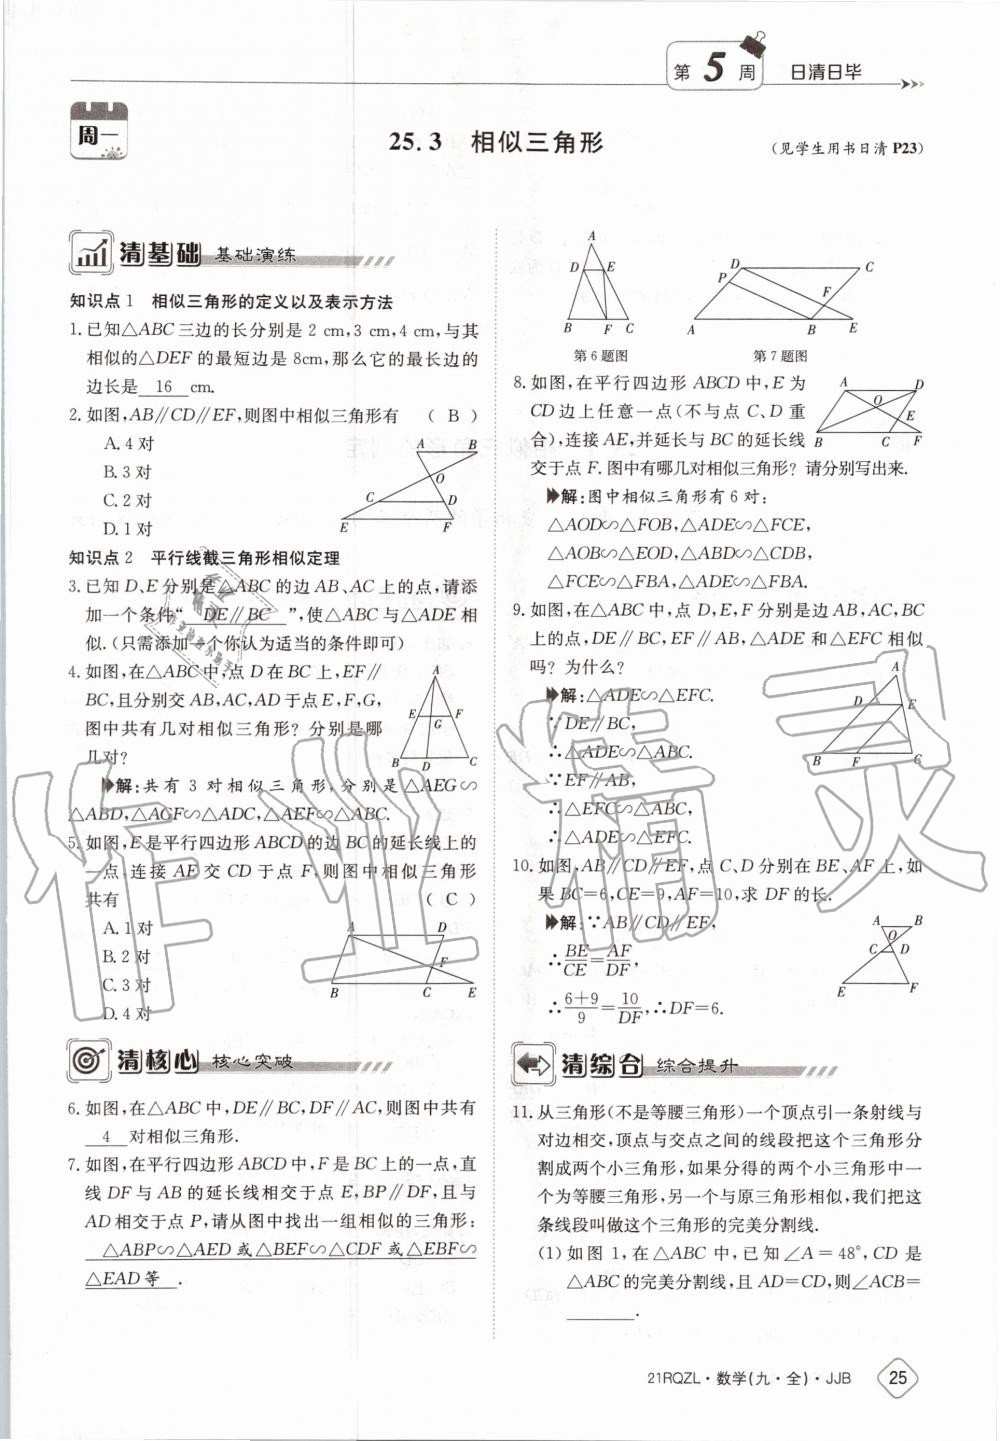 第 5 周 日清日毕
周一
25.3 相似三角形
(见学生用书日清 P23)
清基础 基础演练
知识点 1 相似三角形的定义以及表示方法
1.已知△ABC 三边的长分别是 2 cm,3 cm,4 cm,与其
相似的△DEF 的最短边是 8cm,那么它的最长边的
边长是 16 cm.
2.如图,AB∥CD∥EF,则图中相似三角形有 ( B )
A.4 对
B.3 对
C.2 对
D.1 对
A B
O
C D
E F
知识点 2 平行线截三角形相似定理
3.已知 D,E 分别是△ABC 的边 AB、AC 上的点,请添
加一个条件“ DE∥BC ”,使△ABC 与△ADE 相
似.(只需添加一个你认为适当的条件即可)
4.如图,在△ABC 中,点 D 在 BC 上,EF∥
BC,且分别交 AB,AC,AD 于点 E,F,G,
图中共有几对相似三角形?分别是哪
几对?
A
E F
G
B D C
解:共有 3 对相似三角形,分别是△AEG∽
△ABD,△AGF∽△ADC,△AEF∽△ABC.
5.如图,E 是平行四边形 ABCD 的边 BC 的延长线上的
一点,连接 AE 交 CD 于点 F,则图中相似三角形
共有 ( C )
A.1 对
B.2 对
C.3 对
D.4 对
A D
F
B C E
清核心 核心突破
6.如图,在△ABC 中,DE∥BC,DF∥AC,则图中共有
4 对相似三角形.
7.如图,在平行四边形 ABCD 中,F 是 BC 上的一点,直
线 DF 与 AB 的延长线相交于点 E,BP∥DF,且与
AD 相交于点 P,请从图中找出一组相似的三角形:
△ABP∽△AED 或△BEF∽△CDF 或△EBF∽
△EAD 等 .
A
D E
B F C
第 6 题图
D C
P
F
A B E
第 7 题图
8.如图,在平行四边形 ABCD 中,E 为
CD 边上任意一点(不与点 C、D 重
合),连接 AE,并延长与 BC 的延长线
交于点 F.图中有哪几对相似三角形?请分别写出来.
A D
O
E
B C F
解:图中相似三角形有 6 对:
△AOD∽△FOB,△ADE∽△FCE,
△AOB∽△EOD,△ABD∽△CDB,
△FCE∽△FBA,△ADE∽△FBA.
9.如图,在△ABC 中,点 D,E,F 分别是边 AB,AC,BC
上的点,DE∥BC,EF∥AB,△ADE 和△EFC 相似
吗?为什么?
解:△ADE∽△EFC.
∵DE∥BC,
∴△ADE∽△ABC.
∵EF∥AB,
∴△EFC∽△ABC,
∴△ADE∽△EFC.
A
D E
B F C
10.如图,AB∥CD∥EF,点 C、D 分别在 BE、AF 上,如
果 BC=6,CE=9,AF=10,求 DF 的长.
解:∵AB∥CD∥EF,
∴BE/CE=AF/DF,
∴(6+9)/9=10/DF,∴DF=6.
A B
O
C D
E F
清综合 综合提升
11.从三角形(不是等腰三角形)一个顶点引一条射线与
对边相交,顶点与交点之间的线段把这个三角形分
割成两个小三角形,如果分得的两个小三角形中一
个为等腰三角形,另一个与原三角形相似,我们把这
条线段叫做这个三角形的完美分割线.
(1)如图 1,在△ABC 中,已知∠A=48°,CD 是
△ABC 的完美分割线,且 AD=CD,则∠ACB=
________.
21RQZL·数学(九·全)·JJB 25
作业精灵